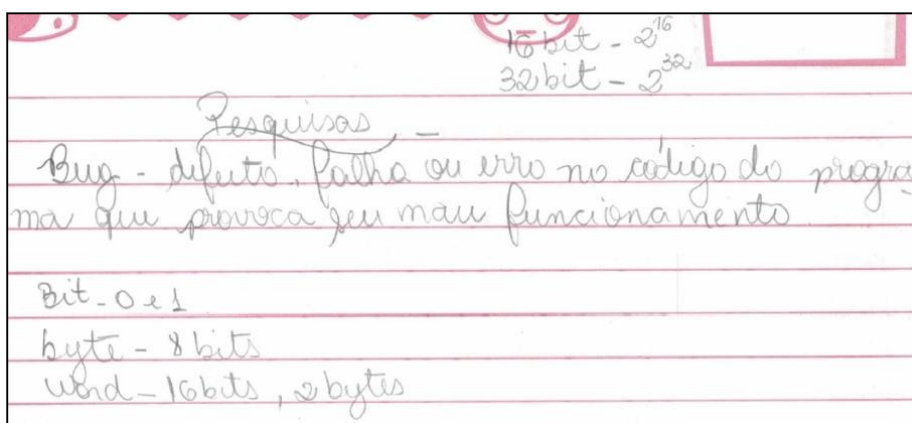 16bit - 2^16
32bit - 2^32
Pesquisas -
Bug - defeito, falha ou erro no código do progra
ma que provoca seu mau funcionamento
Bit - 0 e 1
byte - 8 bits
word - 16bits, 2 bytes